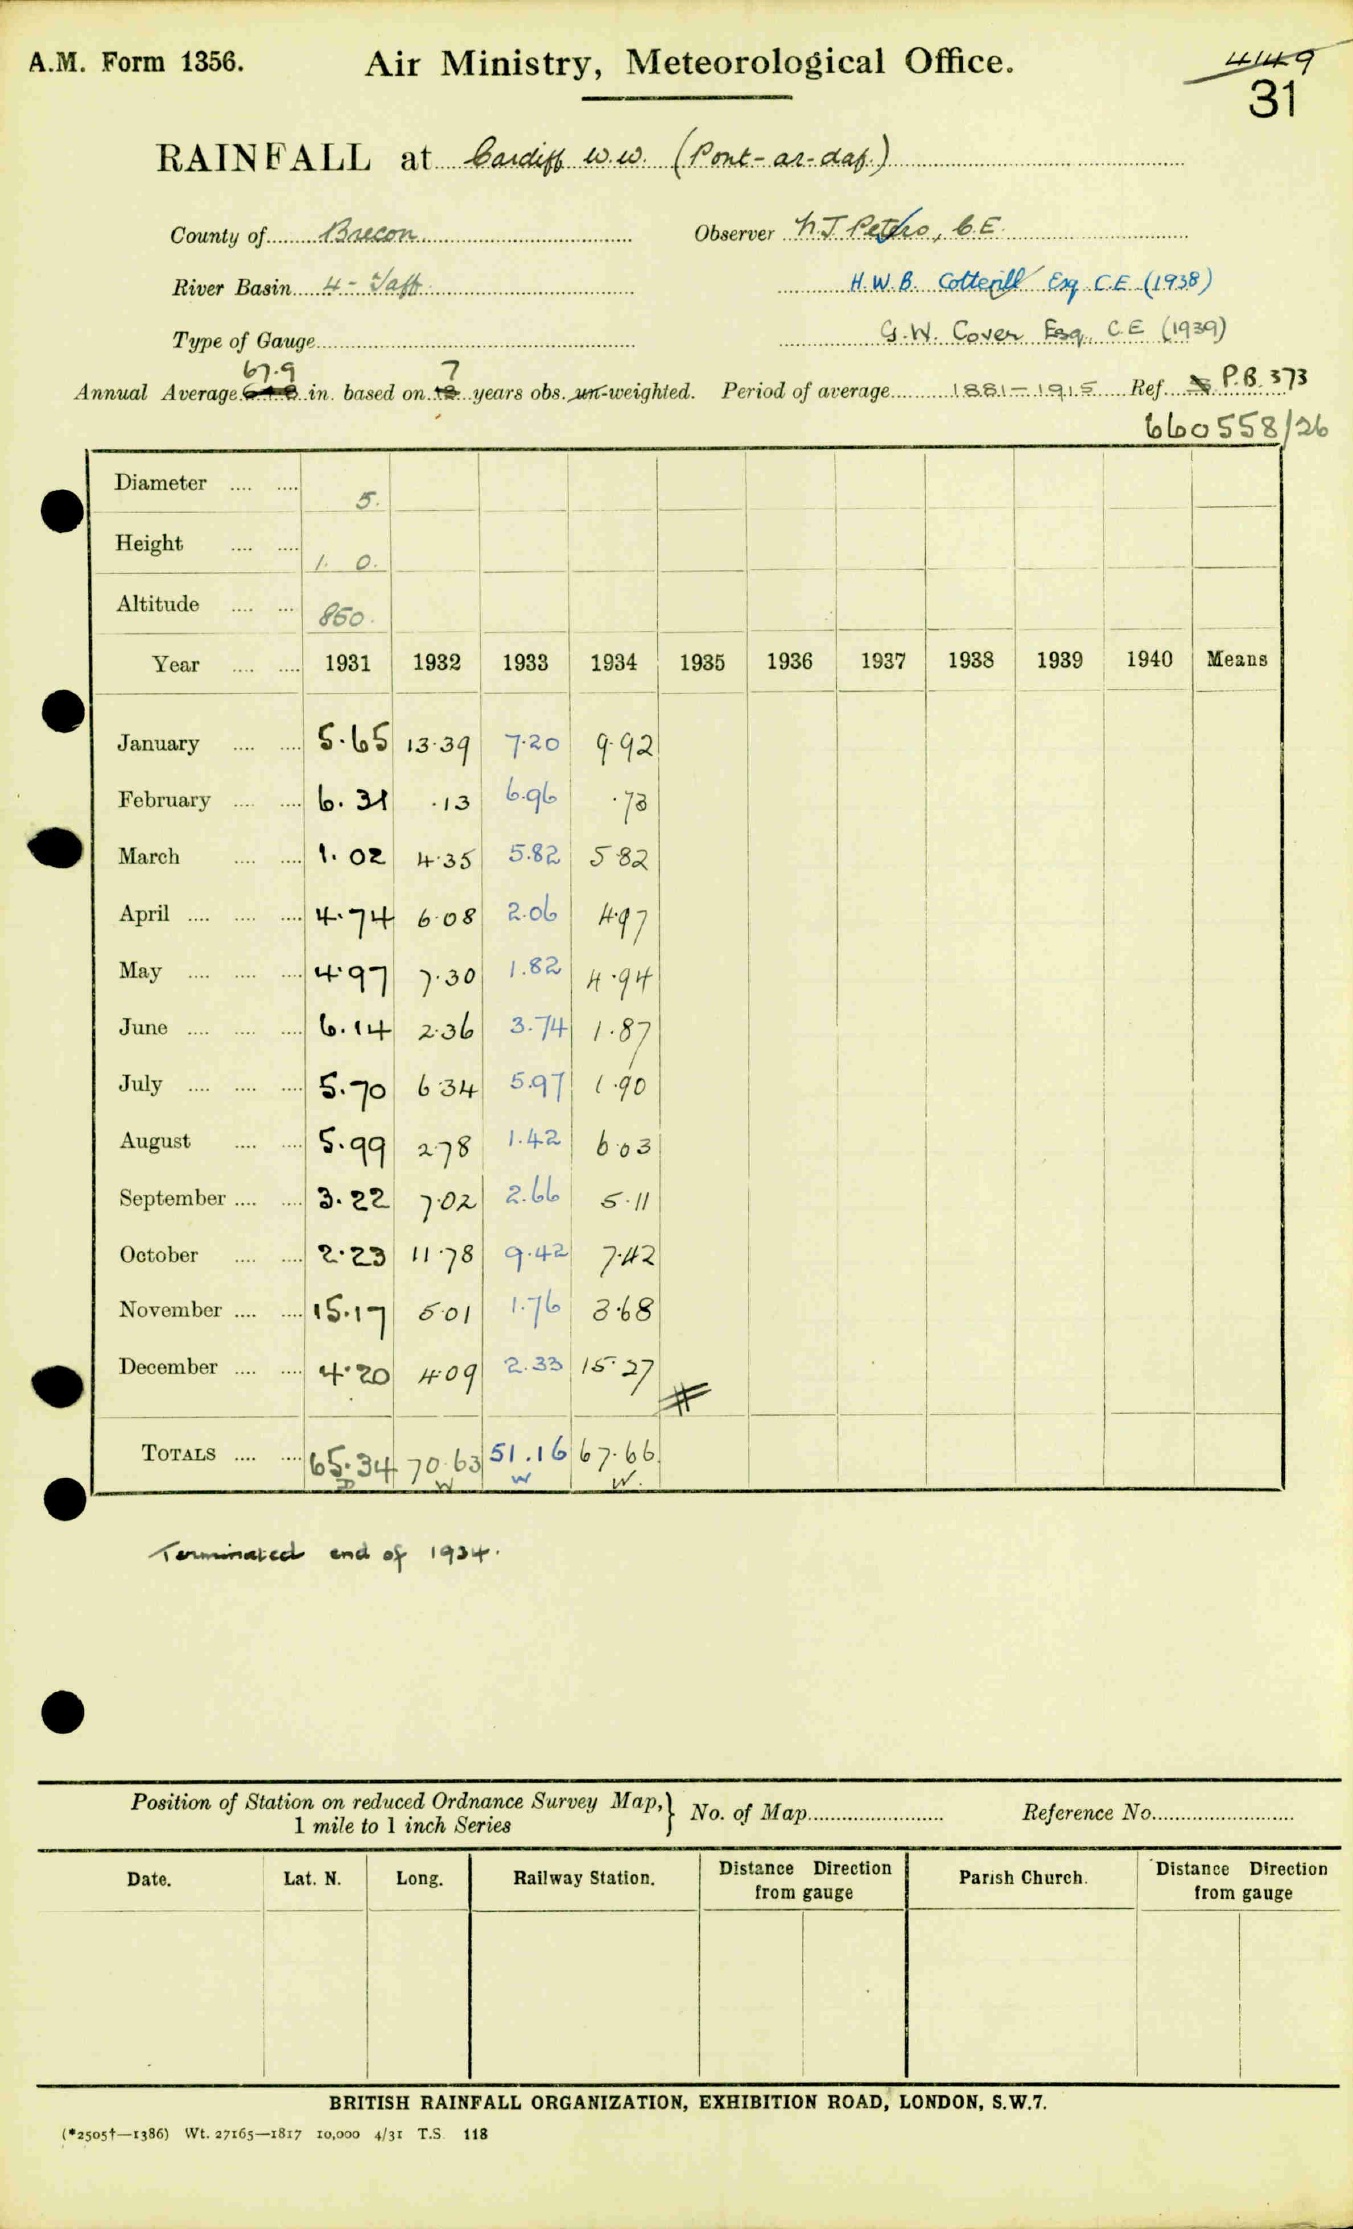 A.M. Form 1356.
Air Ministry, Meteorological Office.
449
31
RAINFALL at Cardiff W.W. (Pont-ar-daf.)
County of Brecon
Observer N.J Peters, C.E.
River Basin 4 - Taff
H.W.B. Cotterill Esq C.E (1938)
Type of Gauge
G.W. Cover Esq. C.E (1939)
67.9 7
Annual Average in. based on years obs. un-weighted. Period of average 1881-1915 Ref. P.B. 373
660558/26
Diameter 5.
Height 1. 0.
Altitude 850.
Year 1931 1932 1933 1934 1935 1936 1937 1938 1939 1940 Means
January 5.65 13.39 7.20 9.92
February 6.31 .13 6.96 .73
March 1.02 4.35 5.82 5.82
April 4.74 6.08 2.06 4.97
May 4.97 7.30 1.82 4.94
June 6.14 2.36 3.74 1.87
July 5.70 6.34 5.97 1.90
August 5.99 2.78 1.42 6.03
September 3.22 7.02 2.66 5.11
October 2.23 11.78 9.42 7.42
November 15.17 5.01 1.76 3.68
December 4.20 4.09 2.33 15.27
TOTALS 65.34 70.63 51.16 67.66
D W W W.
Terminated end of 1934.
Position of Station on reduced Ordnance Survey Map,} No. of Map Reference No.
1 mile to 1 inch Series
Date. Lat. N. Long. Railway Station. Distance Direction from gauge Parish Church. Distance Direction from gauge
BRITISH RAINFALL ORGANIZATION, EXHIBITION ROAD, LONDON, S.W.7.
(*2505†—1386) Wt. 27165—1817 10,000 4/31 T.S. 118